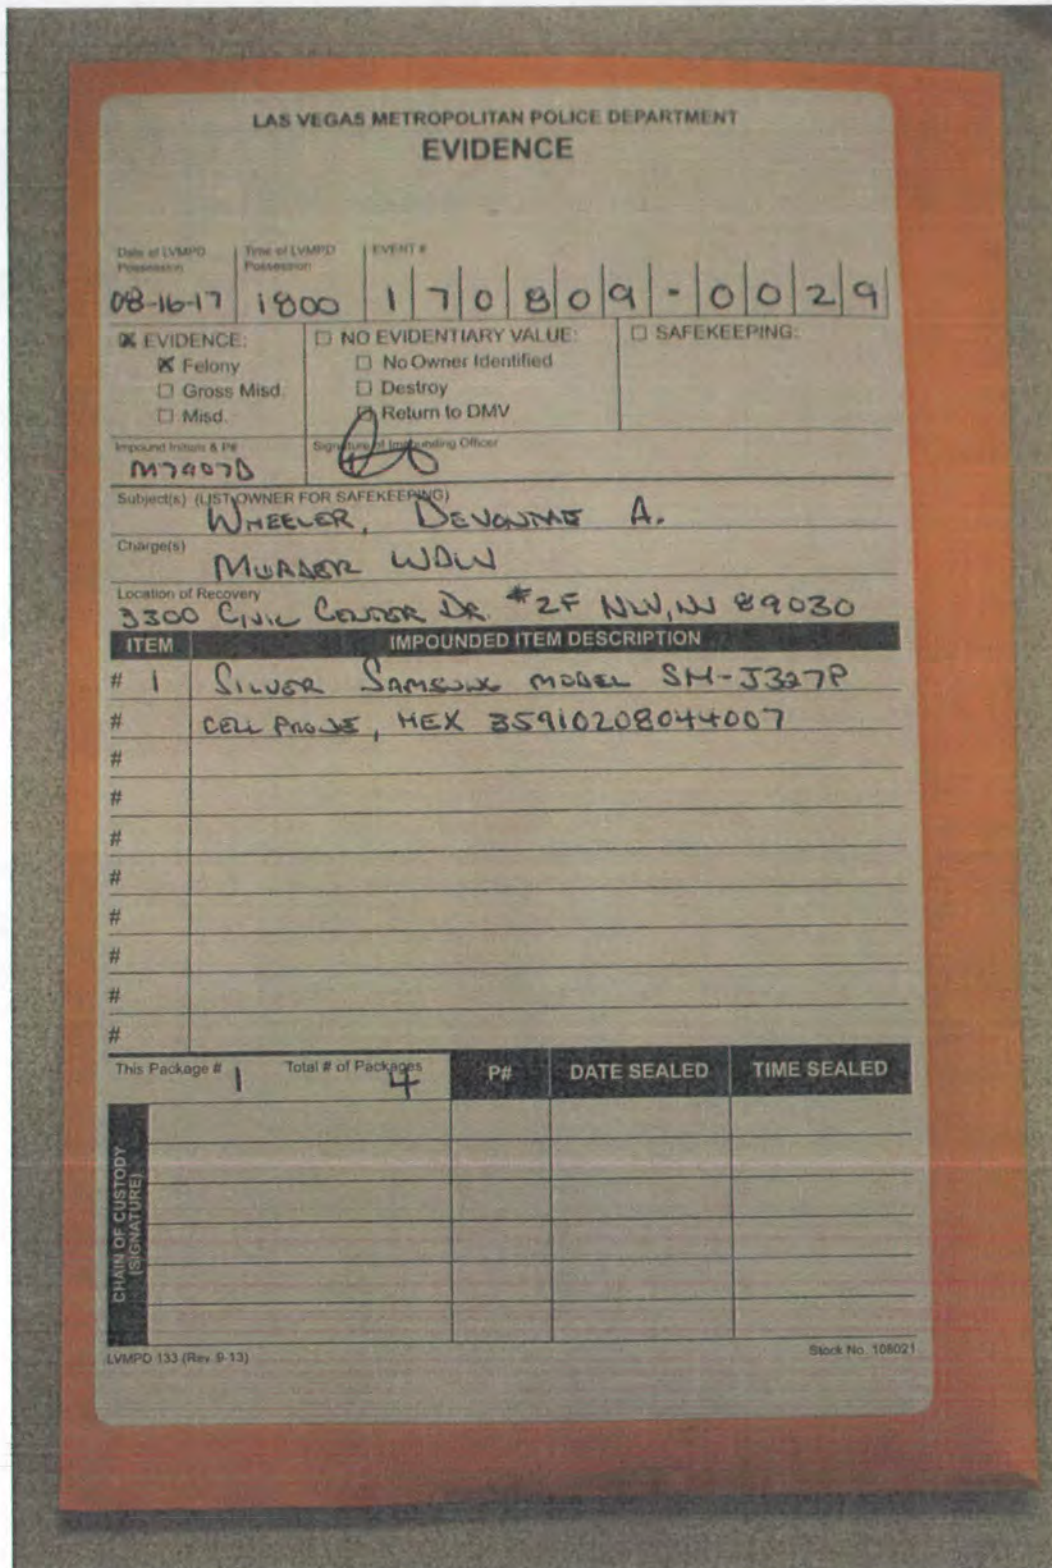 LAS VEGAS METROPOLITAN POLICE DEPARTMENT
EVIDENCE
Date of LVMPD Possession
Time of LVMPD Possession
EVENT #
08-16-17 1800 170809-0029
EVIDENCE: NO EVIDENTIARY VALUE: SAFEKEEPING:
Felony No Owner Identified
Gross Misd. Destroy
Misd. Return to DMV
Impound Initials & P# Signature of Impounding Officer
M7907B
Subject(s) (LIST OWNER FOR SAFEKEEPING)
WHEELER, A.
Charge(s)
MURDER WDW
Location of Recovery
3300 CIVIC CENTER DR #2F NLV, NV 89030
ITEM IMPOUNDED ITEM DESCRIPTION
# 1 SILVER SAMSUNG MODEL SM-J327P
# CELL PHONE, HEX 35910208044007
#
#
#
#
#
#
#
#
This Package # 1 Total # of Packages 4 P# DATE SEALED TIME SEALED
CHAIN OF CUSTODY
(SIGNATURE)
LVMPD 133 (Rev. 9-13) Stock No. 108021